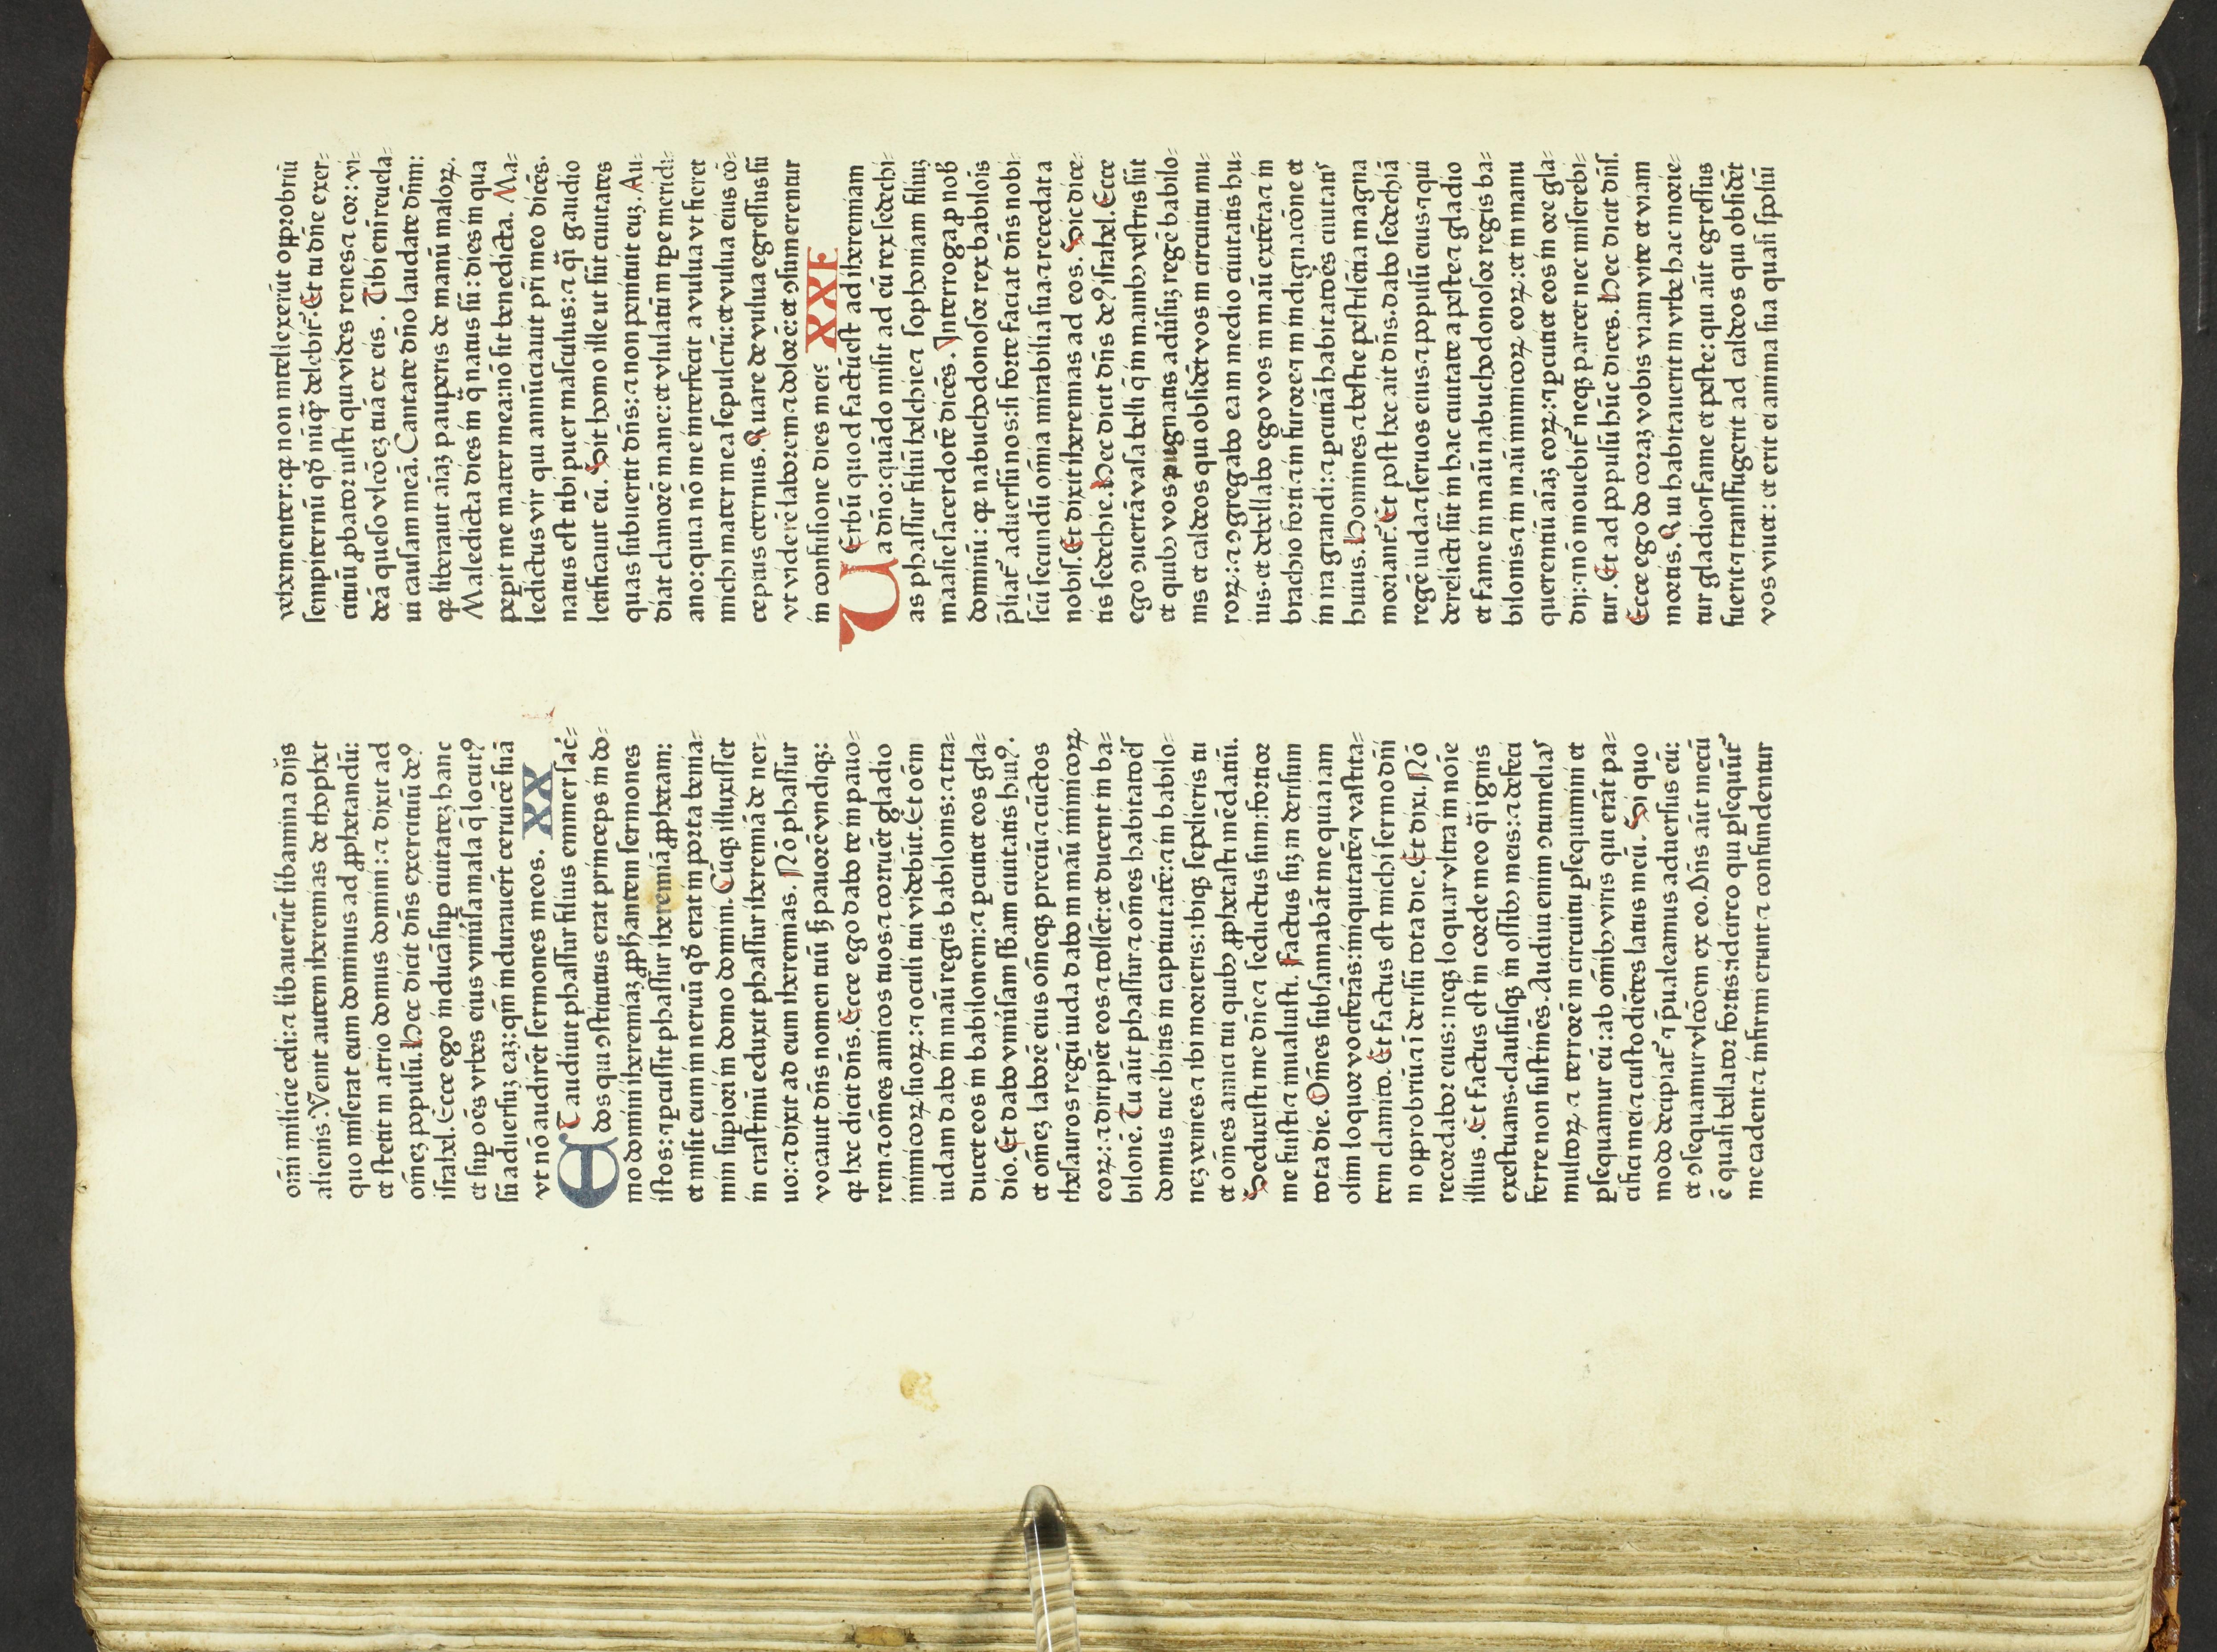 om̄i milicie celi: ⁊ libauerūt libamina dijs
alienis. Venit autem iheremias de thophet
quo miserat eum dominus ad ꝓphetandū:
et stetit in atrio domus domini: ⁊ dixit ad
om̄ez populū. Hec dicit dn̄s exercituū deꝰ
israhel. Ecce ego inducā suꝑ ciuitatez hanc
et suꝑ oēs vrbes eius vniūsa mala q̄ locutꝰ
sū aduersuz eaz: qm̄ indurauert̄ ceruicē suā
vt nō audirēt sermones meos. XX
ET audiuit phassur filius emmer sac̄⸗
dos qui ↄstitutus erat princeps in do⸗
mo domini iheremiaz ꝓph̄antem sermones
istos: ⁊ ꝑcussit phassur iheremiā ꝓphetam:
et misit eum in neruū qd̄ erat in porta benia⸗
min suꝑiori in domo domini. Cūqꝫ illuxisset
in crastinū eduxit phassur iheremiā de ner⸗
uo: ⁊ dixit ad eum iheremias. Nō phassur
vocauit dn̄s nomen tuū sꝫ pauorē vndiqꝫ:
qꝛ hec dicit dn̄s. Ecce ego dabo te in pauo⸗
rem ⁊ om̄es amicos tuos: ⁊ corruēt gladio
inimicoꝝ suoꝝ: ⁊ oculi tui videbūt. Et oēm
iudam dabo in manū regis babilonis: ⁊ tra⸗
ducet eos in babilonem: ⁊ ꝑcutiet eos gla⸗
dio. Et dabo vniūsam sb̄am ciuitatis huiꝰ.
et om̄ez laborē eius om̄eqꝫ preciū ⁊ cūctos
thesauros regū iuda dabo in manū inimicoꝝ
eoꝝ: ⁊ diripiēt eos ⁊ tollēt: et ducent in ba⸗
bilonē. Tu aūt phassur ⁊ om̄es habitatoēs
domus tue ibitis in captiuitatē: ⁊ in babilo⸗
nez venies ⁊ ibi morieris: ibiqꝫ sepelieris tu
et om̄es amici tui quibꝫ ꝓphetasti mēdatiū.
Seduxisti me dn̄e ⁊ seductus sum: fortior
me fuisti ⁊ inualuisti. Factus suꝫ in derisum
tota die. Om̄es subsannabāt me quia iam
olim loquor vociferās: iniquitatē ⁊ vastita⸗
tem clamito. Et factus est michi sermo dn̄i
in opprobriū ⁊ i derisū tota die. Et dixi. Nō
recordabor eius: neqꝫ loquar vltra in noīe
illius. Et factus est in corde meo qͣi ignis
exestuans: claususqꝫ in ossibꝫ meis: ⁊ defeci
ferre non sustinēs. Audiui enim ↄtumelias
multoꝝ ⁊ terrorē in circuitu ꝑsequimini et
ꝑsequamur eū: ab om̄ibꝫ viris qui erāt pa⸗
cifici mei ⁊ custodiētes latus meū. Si quo
modo decipiat᷑ ⁊ p̄ualeamus aduersus eū:
et ↄsequamur vlcōem ex eo. Dn̄s aūt mecū
ē quasi bellator fortis: idcirco qui ꝑsequūt᷑
me cadent ⁊ infirmi erunt ⁊ confundentur
vehementer: qꝛ non intellexerūt opprobriū
sempiternū qd̄ nūqͣ delebit᷑. Et tu dn̄e exer⸗
cituū ꝓbator iusti qui vides renes ⁊ cor: vi⸗
deā queso vlcōez tuā ex eis. Tibi enī reuela⸗
ui causam meā. Cantate dn̄o laudate dn̄m:
qꝛ liberauit aīaꝫ pauperis de manu maloꝝ.
Maledicta dies in qͣ natus sū: dies in qua
peperit me mater mea: nō sit benedicta. Ma⸗
ledictus vir qui annūciauit pr̄i meo dicēs.
natus est tibi puer masculus: ⁊ qͣi gaudio
letificauit eū. Sit homo ille ut sūt ciuitates
quas subuertit dn̄s: ⁊ non penituit euꝫ. Au⸗
diat clamorē mane: et vlulatū in tꝑe meridi⸗
ano: quia nō me interfecit a vulua vt fieret
michi mater mea sepulcrū: et vulua eius cō⸗
ceptus eternus. Quare de vulua egressus sū
vt viderē laborem ⁊ dolorē: et ↄsumerentur
in confusione dies mei: XXI
VErbū quod factū est ad iheremiam
a dn̄o: quādo misit ad eū rex sedechi⸗
as phassur filiū helchie ⁊ sophoniam filiuꝫ
maasie sacerdotē dicēs. Interroga ꝓ nob̄
dominū: qꝛ nabuchodonosor rex babilois
p̄liat᷑ aduersū nos: si forte faciat dn̄s nobi⸗
scū secundū om̄ia mirabilia sua ⁊ recedat a
nobis. Et dixit iheremias ad eos. Sic dice⸗
tis sedechie. Hec dicit dn̄s deꝰ israhel. Ecce
ego ↄuertā vasa belli q̄ in manibꝫ vestris sūt
et quibꝫ vos pugnatis adūsuꝫ regē babilo⸗
nis et caldeos qui obsidēt vos in circuitu mu⸗
roꝝ: ⁊ ↄgregabo ea in medio ciuitatis hu⸗
ius. et debellabo ego vos in manū extēta ⁊ in
brachio forti ⁊ in furore ⁊ in indignacōne et
in ira grandi: ⁊ ꝑcutiā habitatoēs ciuitatis
huius. Homines ⁊ bestie pestilētia magna
moriant᷑. Et post hec ait dn̄s. dabo sedechiā
regē iuda ⁊ seruos eius ⁊ populū eius ⁊ qui
derelicti sūt in hac ciuitate a peste ⁊ gladio
et fame in manū nabuchodonosor regis ba⸗
bilonis ⁊ in manū inimicoꝝ eoꝝ: et in manu
querentiū aīaꝫ eoꝝ: ⁊ ꝑcutiet eos in ore gla⸗
dij: ⁊ nō mouebit᷑ neqꝫ parcet nec miserebi⸗
tur. Et ad populū hūc dices. Hec dicit dn̄s.
Ecce ego do coraꝫ vobis viam vite et viam
mortis. Qui habitauerit in vrbe hac morie⸗
tur gladio ⁊ fame et peste: qui aūt egressus
fuerit ⁊ transfugerit ad caldeos qui obsidēt
vos viuet: et erit ei anima sua quasi spoliū